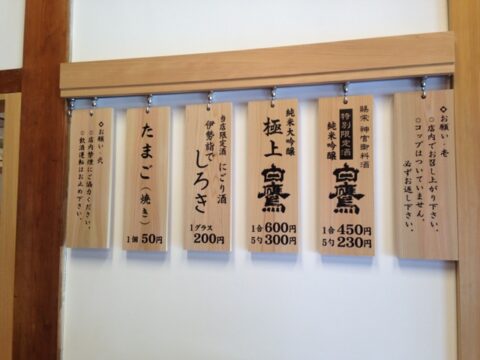 ◇お願い・壱
○店内でお召し上がり下さい。
○コップはついていません。
必ずお返し下さい。
賜栄 神宮御料酒
特別限定酒
純米吟醸
白鷹
1合 450円
5勺 230円
純米大吟醸
極上 白鷹
1合 600円
5勺 300円
当店限定酒 にごり酒
伊勢詣で しろき
1グラス
200円
たまご(焼き)
1個 50円
◇お願い・弐
○店内禁煙にご協力ください。
○飲酒運転はお止め下さい。